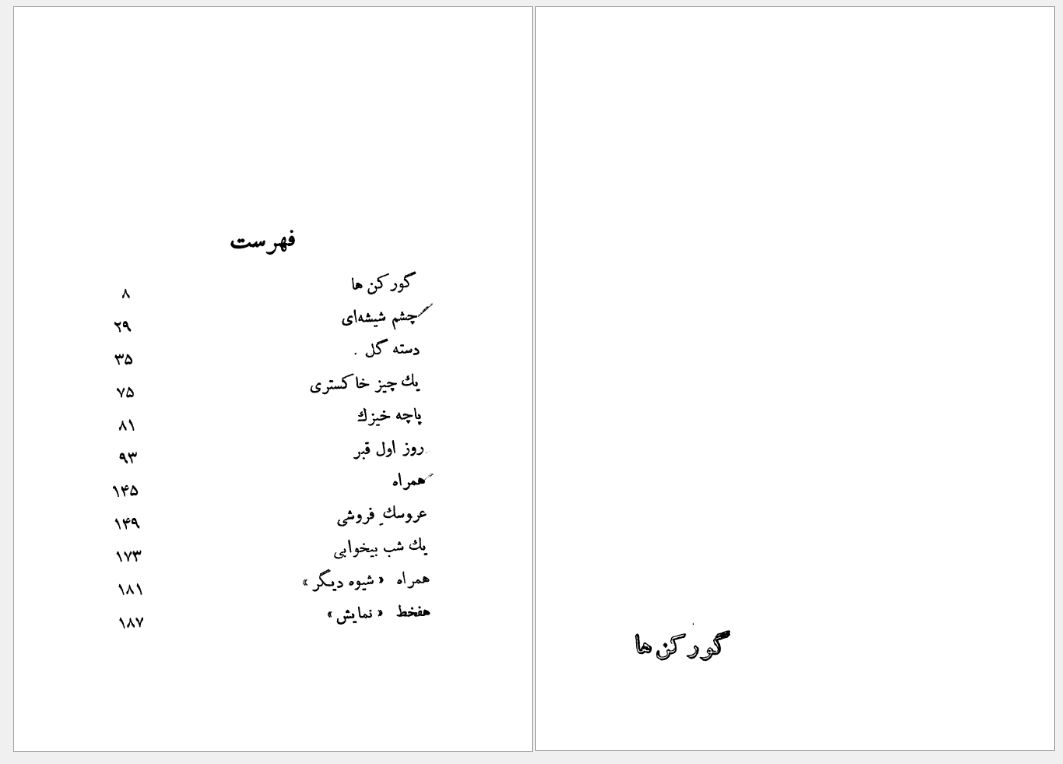 فهرست
گورکن ها ۸
چشم شیشه‌ای ۲۹
دسته گل . ۳۵
يك چیز خاکستری ۷۵
پاچه خیزك ۸۱
روز اول قبر ۹۳
همراه ۱۴۵
عروسك فروشی ۱۴۹
يك شب بیخوابی ۱۷۳
همراه «شیوه دیگر» ۱۸۱
هفخط «نمایش» ۱۸۷
گورکن ها